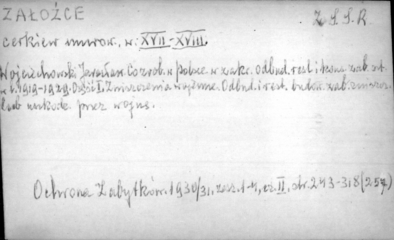 ZAŁOŹCE
Z.S.S.R
cerkiew murow. w. XVII-XVIII.
Wojciechowski Jarosław. Co zrob. w Polsce w zakr. odbud. rest. i kons. zab. szt.
w l. 1919-1929. Część I. Zniszczenia wojenne. Odbud. i rest. budow. zab. zniszcz.
lub uszkodz. przez wojnę.
Ochrona Zabytków. 1930/31, zesz. 1-4, cz. II, str. 243-318 (257)